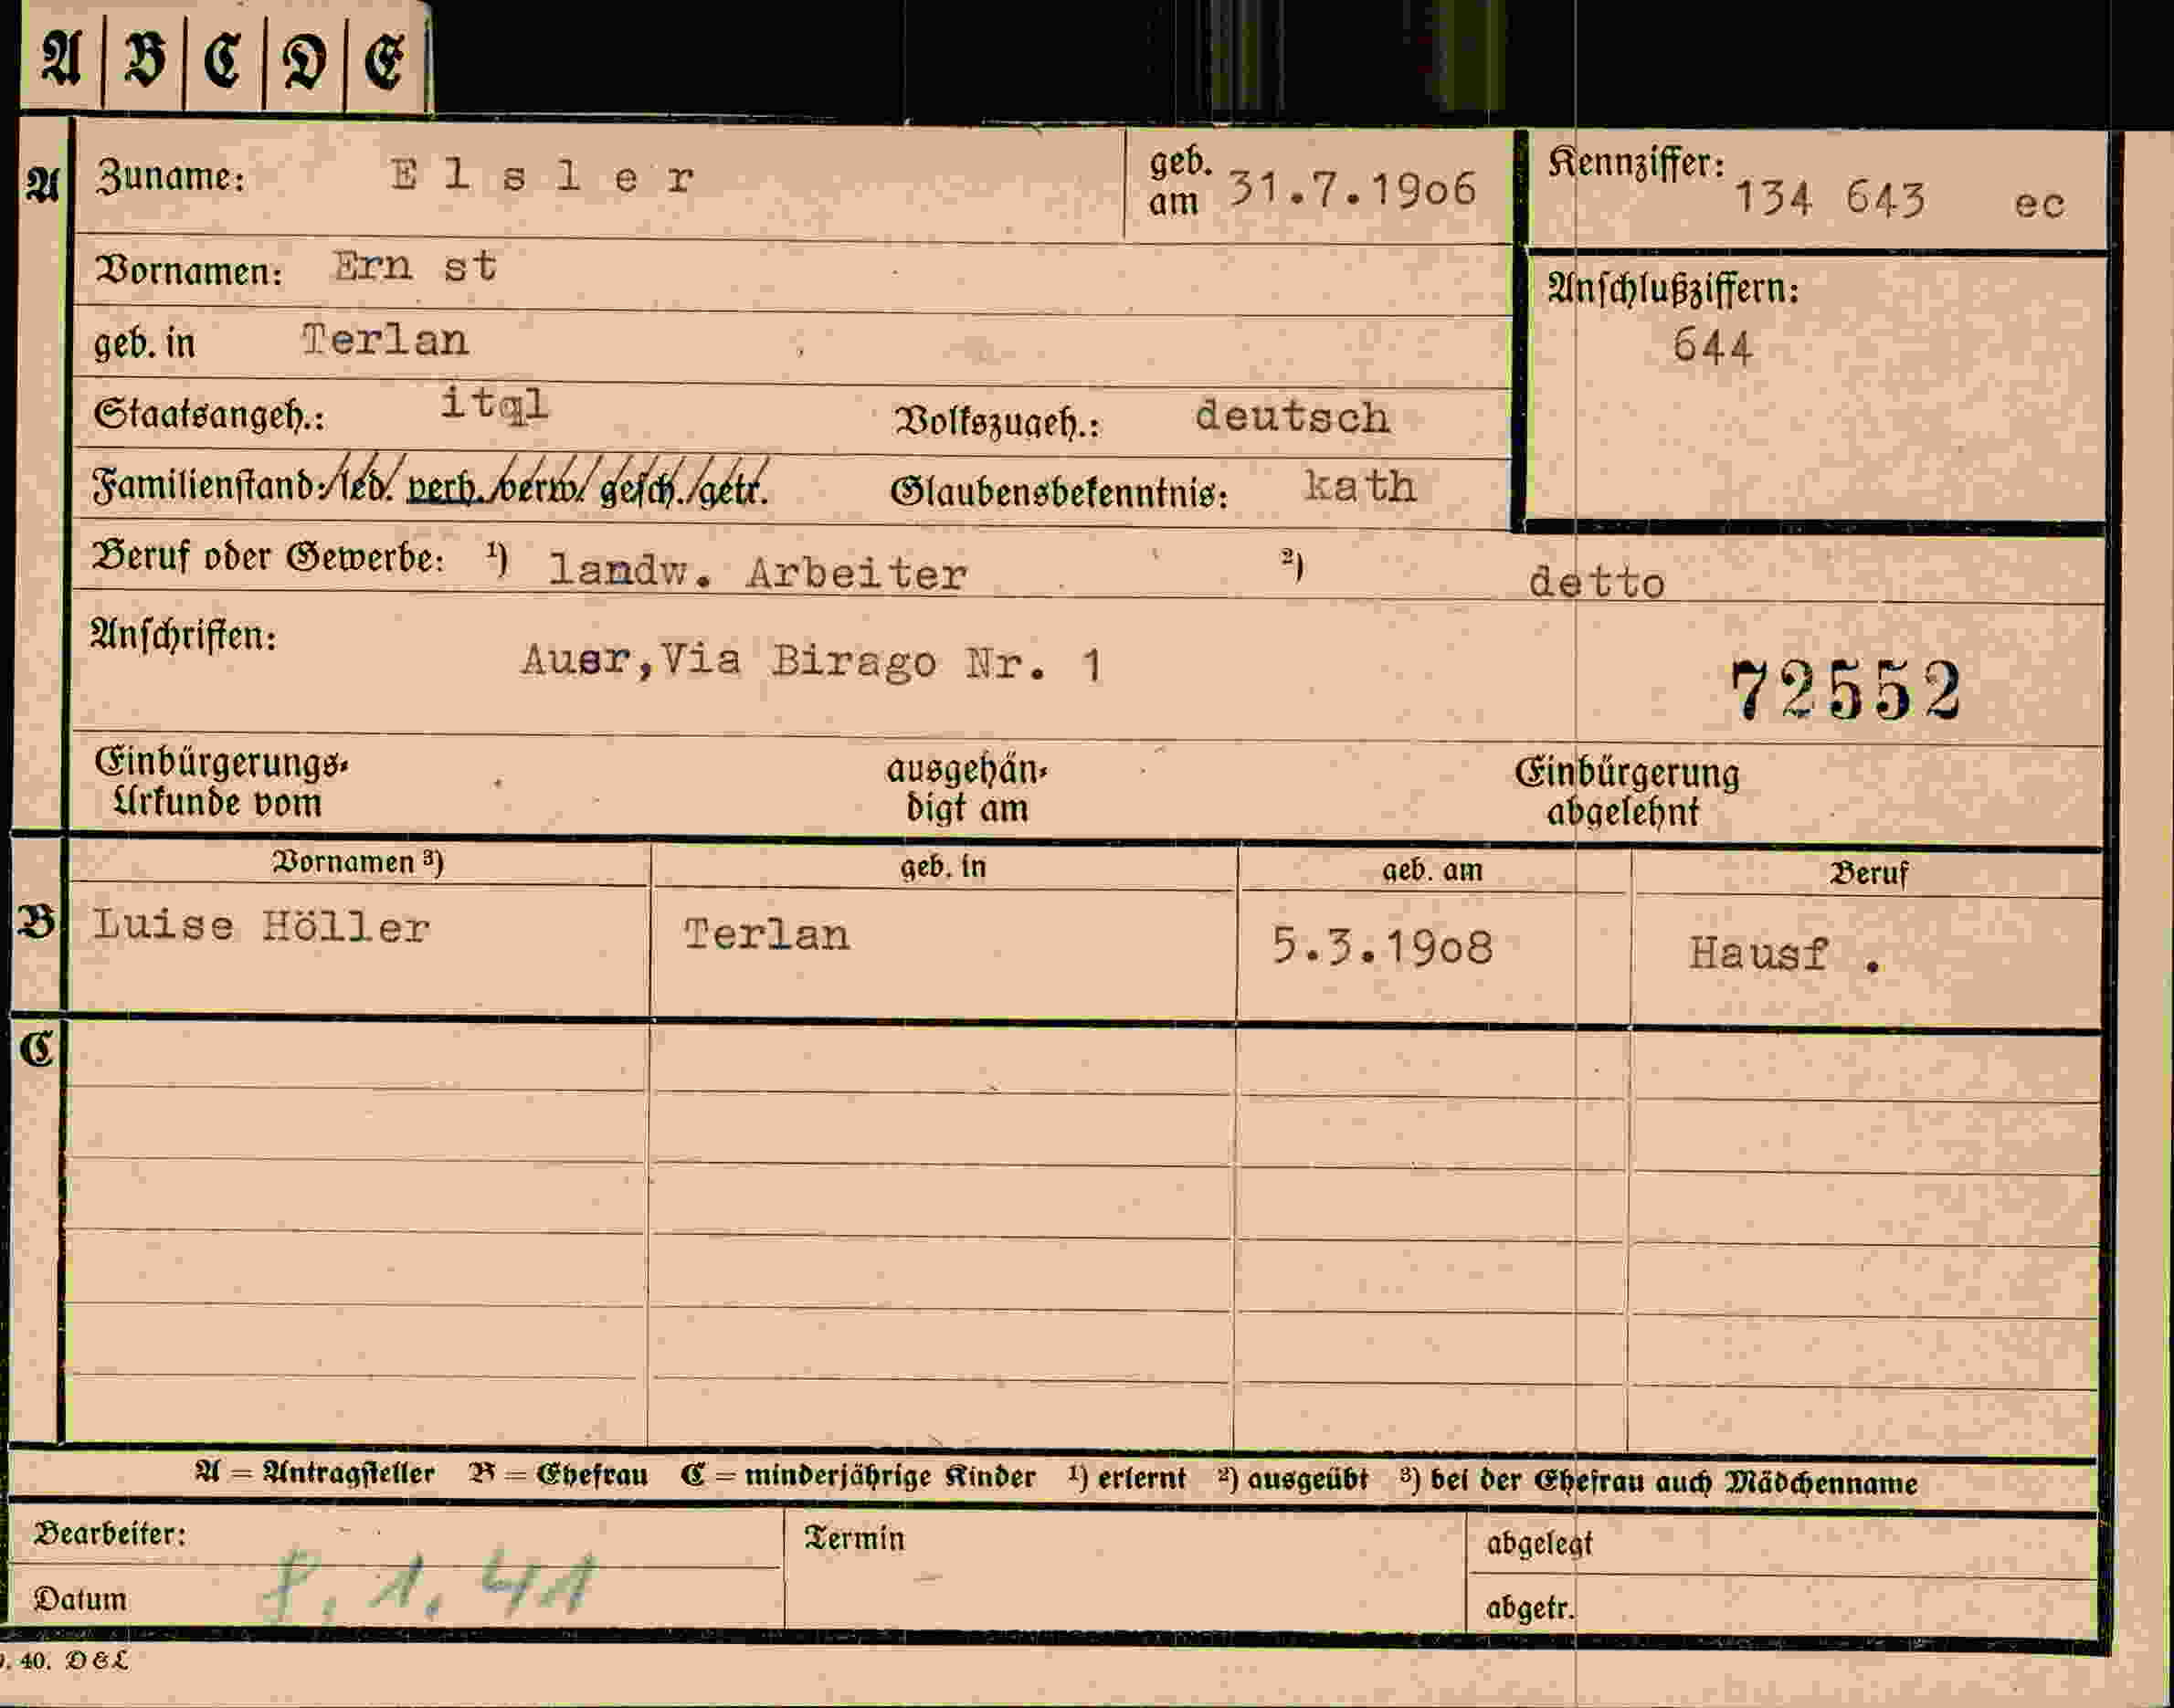 A B C D E
A Zuname: Elsler geb. am 31.7.1906 Kennziffer: 134 643 ec
Vornamen: Ern st Anschlußziffern:
geb. in Terlan 644
Staatsangeh.: ital Volkszugeh.: deutsch
Familienstand: led. verh. verw. gesch./getr. Glaubensbekenntnis: kath
Beruf oder Gewerbe: ¹) landw. Arbeiter ²) detto
Anschriften: Auer, Via Birago Nr. 1
72552
Einbürgerungs-Urkunde vom ausgehän-digt am Einbürgerung abgelehnt
Vornamen ³) geb. in geb. am Beruf
B Luise Höller Terlan 5.3.1908 Hausf .
C
A = Antragsteller B = Ehefrau C = minderjährige Kinder ¹) erlernt ²) ausgeübt ³) bei der Ehefrau auch Mädchenname
Bearbeiter: Termin abgelegt
Datum 8.1.41 abgetr.
40. D&L